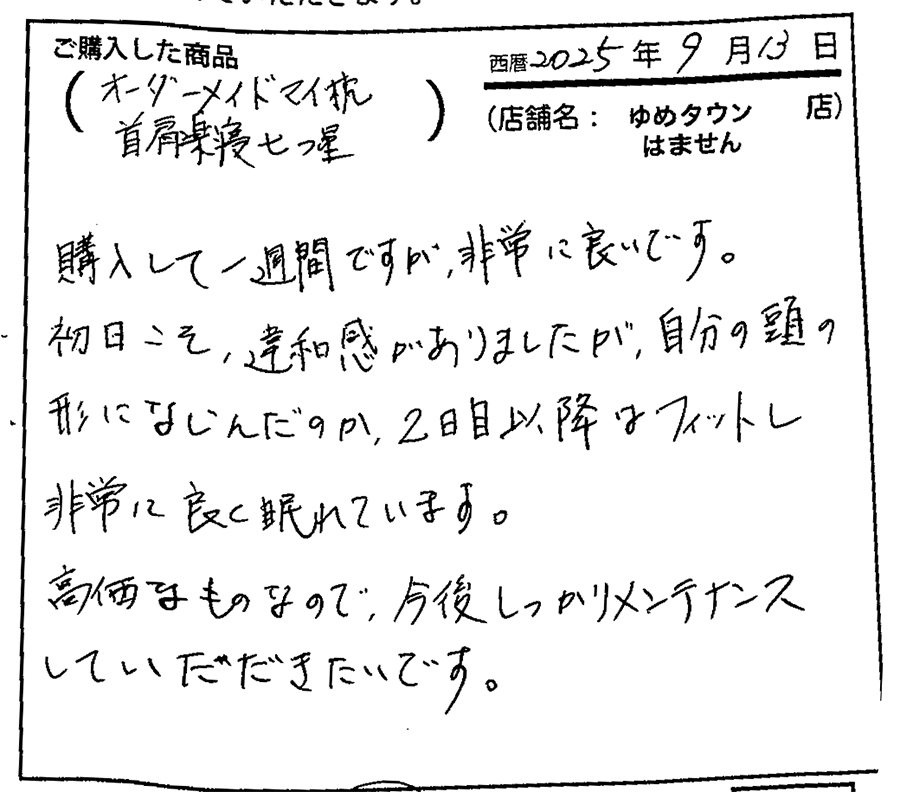 ご購入した商品
(オーダーメイドマイ枕
首肩楽寝七つ星)
西暦2025年9月13日
(店舗名: ゆめタウン 店)
はません
購入して一週間ですが、非常に良いです。
初日こそ、違和感がありましたが、自分の頭の
形になじんだのか、2日目以降はフィットし
非常に良く眠れています。
高価なものなので、今後しっかりメンテナンス
していただきたいです。